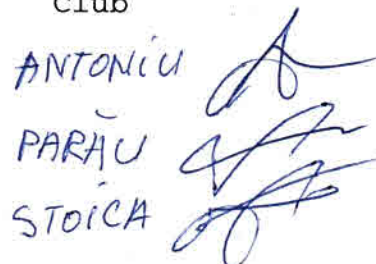 club
ANTONIU
PARĂU
STOICA